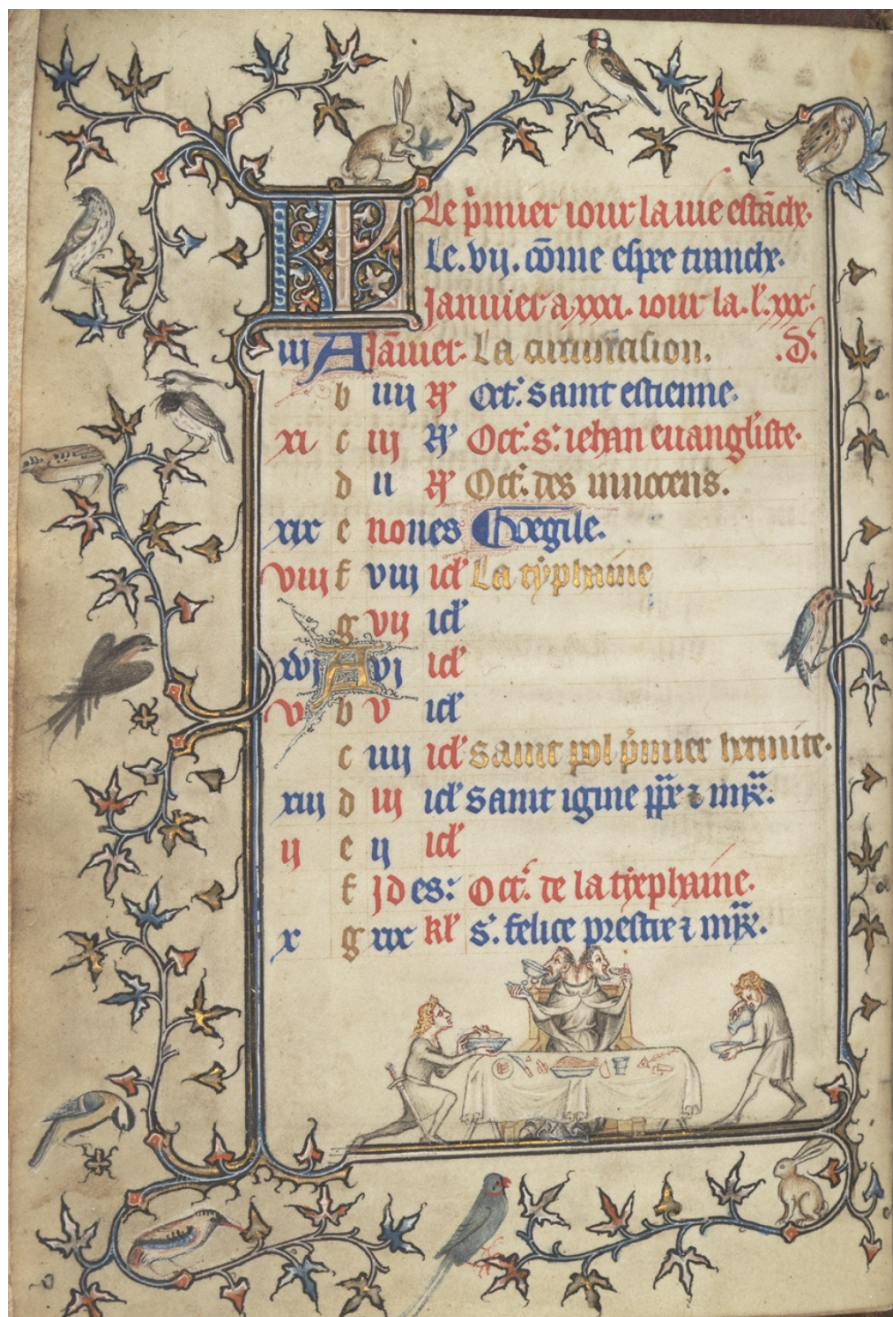 KL Le p̄mier iour la uie estāche.
Le. vij. cōme espee tranche.
Januier a. xxxi. iour la. l'. xxx.
iij A Jāuier. La circuncision. .D.
b iiij N' Oct'. saint estienne.
xi c iij N' Oct'. s'. iehan euangliste.
d ij N' Oct'. des innocens.
xix e nones
viij f viij id' La typhaine
g vij id'
xvi A vj id'
v b v id'
c iiij id' saint pol p̄mier hermite.
xiij d iij id' saint igine pp̄e ⁊ mr̄.
ij e ij id'
f Jdes: Oct'. de la typhaine.
x g xix kl' s'. felice prestre ⁊ mr̄.